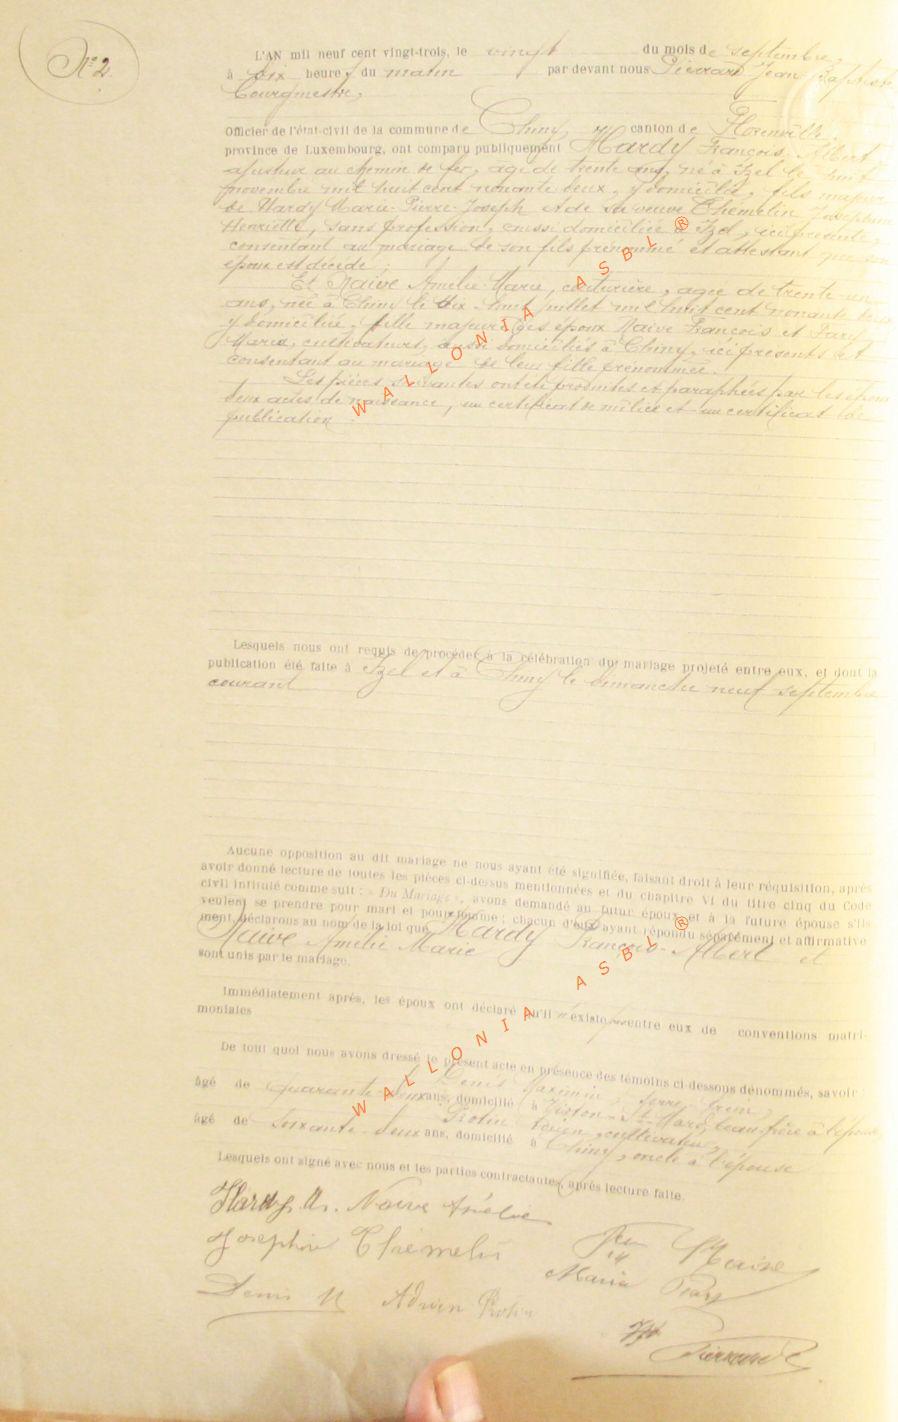 N° 2
L'AN mil neuf cent vingt-trois, le vingt du mois de septembre,
à dix heures du matin par devant nous Pierrard Jean Baptiste
Bourgmestre,
Officier de l'état-civil de la commune de Chiny canton de Florenville,
province de Luxembourg, ont comparu publiquement Hardy François-Albert
ajusteur au chemin de fer, âgé de trente ans, né à Izel le huit
novembre mil huit cent nonante deux, y domicilié, fils majeur
de Hardy Marie-Pierre-Joseph et de sa veuve Thémelin Joséphine
Henriette, sans profession, aussi domiciliée à Izel, ici présente,
consentant au mariage de son fils prénommé et attestant que son
époux est décédé.
Et Naive Amélie-Marie, couturière, âgée de trente un
ans, née à Chiny le dix-huit juillet mil huit cent nonante deux
y domiciliée, fille majeure des époux Naive François et
Maria, cultivateurs, aussi domiciliés à Chiny, ici présents et
consentant au mariage de leur fille prénommée.
Les pièces suivantes ont été produites et paraphées par les époux
deux actes de naissance, un certificat de milice et un certificat de
publication.
Lesquels nous ont requis de procéder à la célébration du mariage projeté entre eux, et dont la
publication été faite à Izel et à Chiny le dimanche neuf septembre
courant
Aucune opposition au dit mariage ne nous ayant été signifiée, faisant droit à leur réquisition, après
avoir donné lecture de toutes les pièces ci-dessus mentionnées et du chapitre VI du titre cinq du Code
civil intitulé comme suit : « Du Mariage », avons demandé au futur époux et à la future épouse s'ils
veulent se prendre pour mari et pour femme ; chacun d'eux ayant répondu séparément et affirmative
ment, déclarons au nom de la loi que Hardy François-Albert et
Naive Amélie Marie
sont unis par le mariage.
Immédiatement après, les époux ont déclaré qu'il n'existe pas entre eux de conventions matri-
moniales
De tout quoi nous avons dressé le présent acte en présence des témoins ci-dessous dénommés, savoir :
Denis Maximin,
âgé de quarante-deux ans, domicilié à St-Mard, beau-frère à l'épouse,
cultivateur,
âgé de soixante-deux ans, domicilié à Chiny, oncle à l'épouse
Lesquels ont signé avec nous et les parties contractantes, après lecture faite.
Hardy A. Naive Amélie
Joséphine Thémelin
Naive
Maria
Denis M
Adrien
Pierrard
WALLONIA ASBL ®
WALLONIA ASBL ®